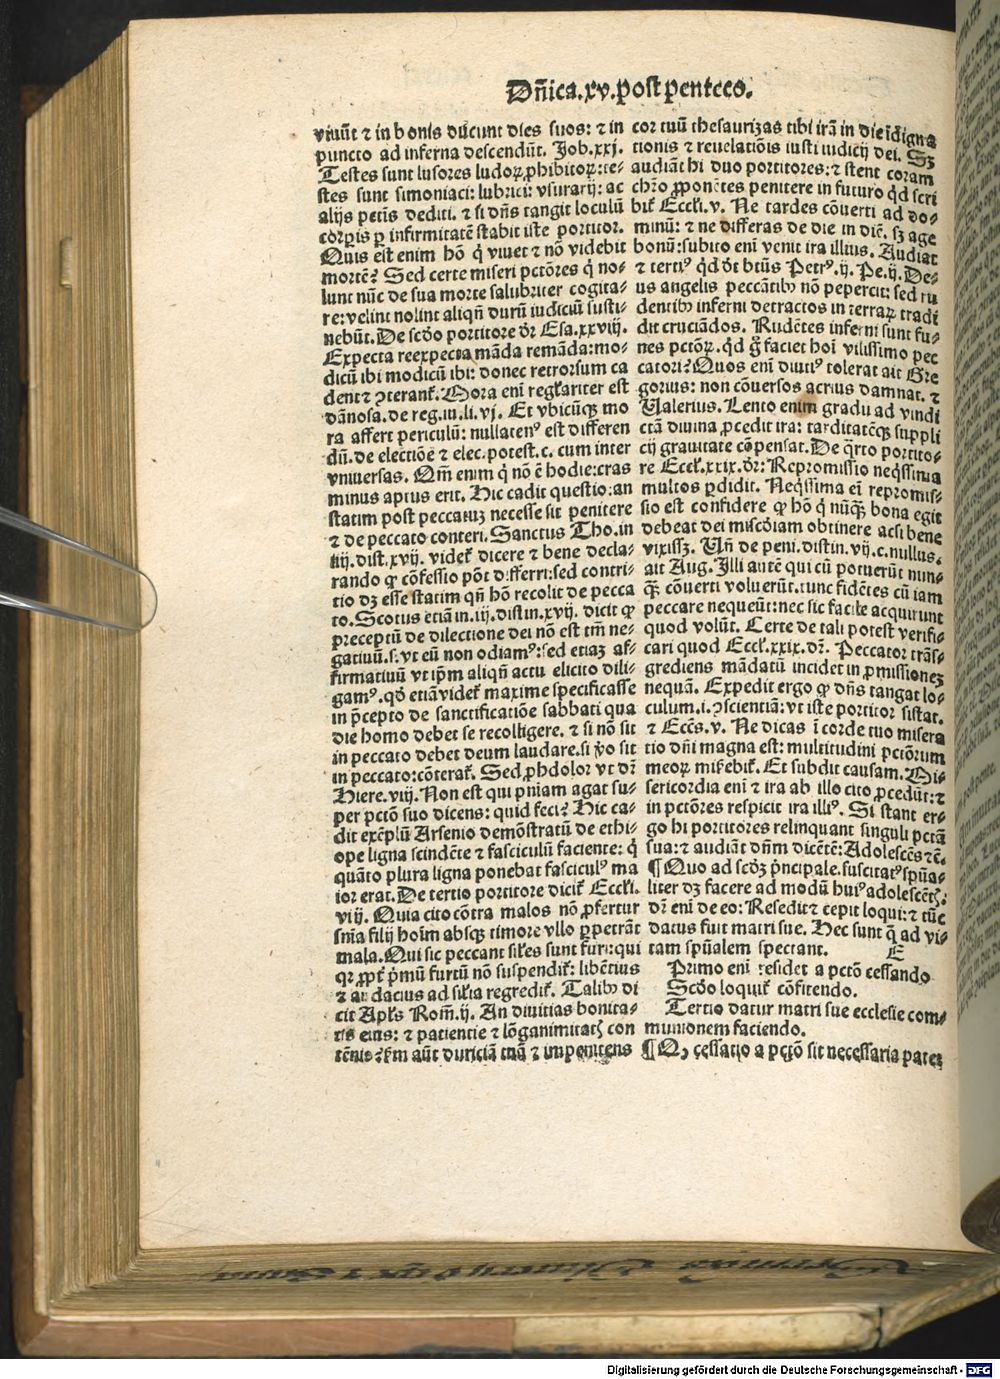 Dñica.xv.post penteco.
viuũt ⁊ in bonis ducunt dies suos: ⁊ in
puncto ad inferna descendũt. Job.xxj.
Testes sunt lusores ludoꝝ ꝓhibitoꝝ: te-
stes sunt simoniaci: lubrici: vsurarij: ac
alijs pctĩs dediti. ⁊ si dñs tangit loculũ
corpis ꝑ infirmitatẽ stabit iste portitor.
Quis est enim hõ q̇ viuet ⁊ nõ videbit
mortẽ? Sed certe miseri pctõres q̇ no-
lunt nũc de sua morte salubriter cogita-
re: velint nolint aliqñ durũ iudiciũ susti-
nebũt. De scðo portitore dr̃ Esa.xxviij.
Expecta reexpecta mãda remãda: mo-
dicũ ibi modicũ ibi: donec retrorsum ca
dent ⁊ ꝯteranť. Mora enĩ regľariter est
dãnosa. de reg.iu.li.vj. Et vbicũqꝫ mo
ra affert periculũ: nullatenꝰ est differen
dũ. de electiõe ⁊ elec.potest.c. cum inter
vniuersas. Qm̃ enim q̇ nõ ẽ hodie: cras
minus aptus erit. Hic cadit questio: an
statim post peccatuꝫ necesse sit penitere
⁊ de peccato conteri. Sanctus Tho. in
iiij. dist. xvij. videť dicere ⁊ bene decla-
rando ꝙ cõfessio põt differri: sed contri-
tio dꝫ esse statim qñ hõ recolit de pecca
to. Scotus etiã in.iij.distin.xvij. dicit ꝙ
preceptũ de dilectione dei nõ est tm̃ ne-
gatiuũ.s. vt eũ non odiamꝰ: sed etiaꝫ af-
firmatiuũ vt ip̃m aliqñ actu elicito dili-
gamꝰ. qð etiã videť maxime specificasse
in p̃cepto de sanctificatiõe sabbati qua
die homo debet se recolligere. ⁊ si nõ sit
in peccato debet deum laudare. si ṽo sit
in peccato: cõterať. Sed ꝓhdolor vt dr̃
Hiere.viij. Non est qui pñiam agat su-
per pctõ suo dicens: quid feci? Hic ca-
dit exẽplũ Arsenio demõstratũ de ethi-
ope ligna scindẽte ⁊ fasciculũ faciente: q̇
quãto plura ligna ponebat fasciculꝰ ma
ior erat. De tertio portitore diciť Eccľi.
viij. Quia cito cõtra malos nõ ꝓfertur
sñia filij hoĩm absqꝫ timore vllo ꝑpetrãt
mala. Qui sic peccant siľes sunt furi: qui
qꝛ ꝓpť p̃mũ furtũ nõ suspendiť: libẽtius
⁊ audacius ad siľia regrediť. Talibꝰ di
cit Apľs Rom̃.ij. An diuitias bonita-
tis eius: ⁊ patientie ⁊ lõganimitatꝭ con
tẽnis? ẜm aũt duriciã tuã ⁊ impenitens
cor tuũ thesaurizas tibi irã in die ĩdigna
tionis ⁊ reuelatiõis iusti iudicij dei. Sꝫ
audiãt hi duo portitores: ⁊ stent coram
chr̃o ꝓponẽtes penitere in futuro qð scri
biť Eccľi.v. Ne tardes cõuerti ad do-
minũ: ⁊ ne differas de die in diẽ. sꝫ age
bonũ: subito enĩ venit ira illius. Audiat
⁊ tertiꝰ qð dt̃ bt̃us Petrꝰ.ij. Pe.ij. De-
us angelis peccãtibꝰ nõ pepercit: sed ru
dentibꝰ inferni detractos in terraꝝ tradi
dit cruciãdos. Rudẽtes inferni sunt fu-
nes pctõꝝ. qð g̊ faciet hoĩ vilissimo pec
catori? Quos enĩ diutiꝰ tolerat ait Gre
gorius: non cõuersos acrius damnat. ⁊
Valerius. Lento enim gradu ad vindi
ctã diuina ꝓcedit ira: tarditatẽqꝫ suppli
cij grauitate cõpensat. De q̃rto portito-
re Eccľ.xxix.dr̃: Repromissio neq̇ssima
multos ꝑdidit. Neq̇ssima eĩ repromis-
sio est confidere ꝙ hõ q̇ nũqꝫ̃ bona egit
debeat dei miscðiam obtinere acsi bene
vixissꝫ. Vñ de peni.distin.vij.c.nullus.
ait Aug. Illi autẽ qui cũ potuerũt nun-
qꝫ̃ cõuerti voluerũt. tunc fidẽtes cũ iam
peccare nequeũt: nec sic facile acquirunt
quod volũt. Certe de tali potest verifi-
cari quod Eccľ.xxix.dr̃. Peccator trãs-
grediens mãdatũ incidet in ꝓmissioneꝫ
nequã. Expedit ergo ꝙ dñs tangat lo-
culum.i. ꝯscientiã: vt iste portitor sistat.
⁊ Eccľs.v. Ne dicas ĩ corde tuo misera
tio dñi magna est: multitudini pctõrum
meoꝝ misebiť. Et subdit causam. Mi-
sericordia enĩ ⁊ ira ab illo cito ꝓcedũt: ⁊
in pctõres respicit ira illiꝰ. Si stant er-
go hi portitores relinquant singuli pctã
sua: ⁊ audiãt dñm dicẽtẽ: Adolescẽs ⁊c̃.
¶ Quo ad scðꝫ p̃ncipale. suscitatꝰ spũa-
liter dꝫ facere ad modũ huiꝰ adolescẽtꝭ.
dr̃ enĩ de eo: Resedit ⁊ cepit loqui: ⁊ tũc
datus fuit matri sue. Hec sunt q̃ ad vi-
tam spũalem spectant. E
Primo enĩ residet a pctõ cessando
Scðo loquiť cõfitendo.
Tertio datur matri sue ecclesie com-
munionem faciendo.
¶ Qꝯ cessatio a pctõ sit necessaria pateꝫ
Digitalisierung gefördert durch die Deutsche Forschungsgemeinschaft - DFG